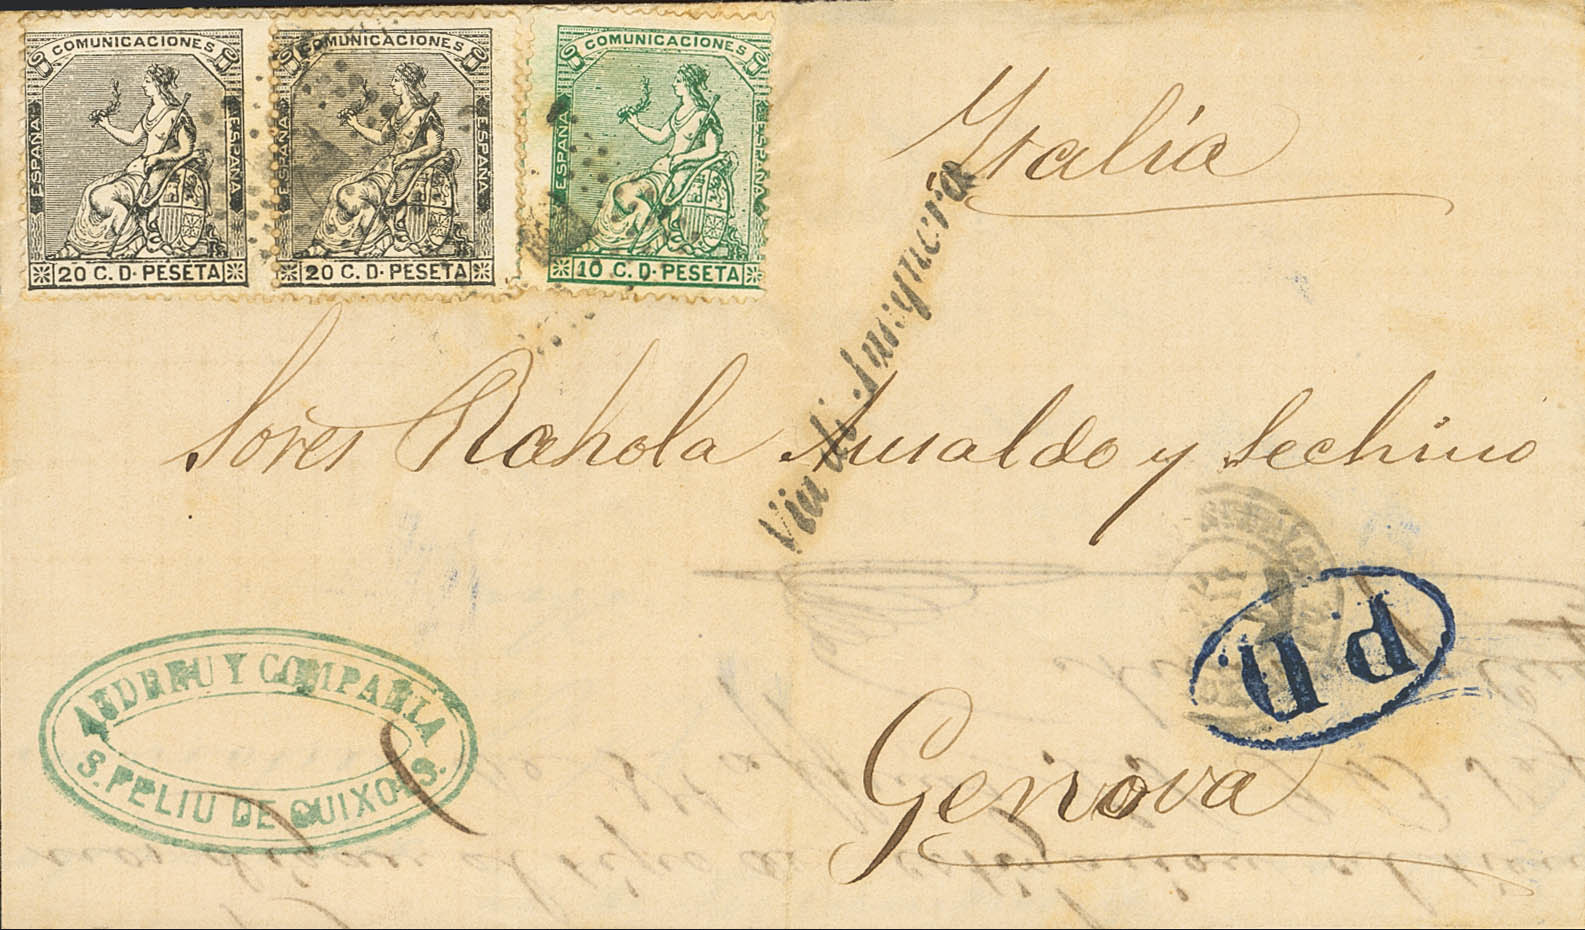 COMUNICACIONES
ESPAÑA
ESPAÑA
20 C. D. PESETA
COMUNICACIONES
ESPAÑA
ESPAÑA
20 C. D. PESETA
COMUNICACIONES
ESPAÑA
ESPAÑA
10 C. D. PESETA
Italia
Via di Junquera
Sores Rahola Ansaldo y Sechino
P.D.
Y COMPAÑIA
S. FELIU DE GUIXOLS.
Genova